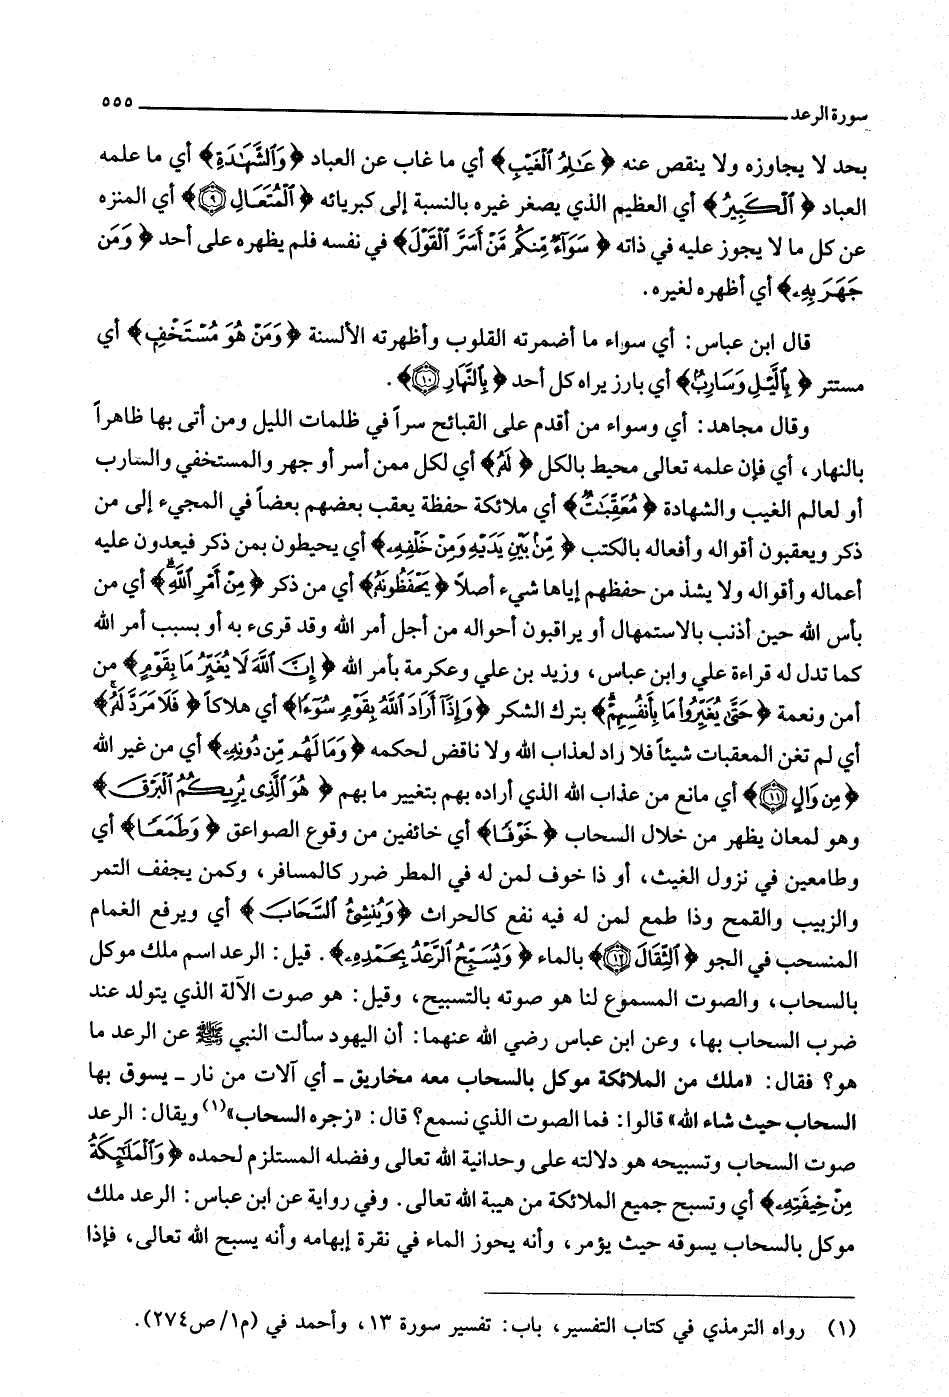 سورة الرعد ٥٥٥
بحد لا يجاوزه ولا ينقص عنه ﴿عَٰلِمُ ٱلْغَيْبِ﴾ أي ما غاب عن العباد ﴿وَٱلشَّهَٰدَةِ﴾ أي ما علمه
العباد ﴿ٱلْكَبِيرُ﴾ أي العظيم الذي يصغر غيره بالنسبة إلى كبريائه ﴿ٱلْمُتَعَالِ ۝٩﴾ أي المنزه
عن كل ما لا يجوز عليه في ذاته ﴿سَوَآءٌ مِّنكُم مَّنْ أَسَرَّ ٱلْقَوْلَ﴾ في نفسه فلم يظهره على أحد ﴿وَمَن
جَهَرَ بِهِۦ﴾ أي أظهره لغيره.
قال ابن عباس: أي سواء ما أضمرته القلوب وأظهرته الألسنة ﴿وَمَنْ هُوَ مُسْتَخْفٍۭ﴾ أي
مستتر ﴿بِٱلَّيْلِ وَسَارِبٌۢ﴾ أي بارز يراه كل أحد ﴿بِٱلنَّهَارِ ۝١٠﴾.
وقال مجاهد: أي وسواء من أقدم على القبائح سراً في ظلمات الليل ومن أتى بها ظاهراً
بالنهار، أي فإن علمه تعالى محيط بالكل ﴿لَهُۥ﴾ أي لكل ممن أسر أو جهر والمستخفي والسارب
أو لعالم الغيب والشهادة ﴿مُعَقِّبَٰتٌ﴾ أي ملائكة حفظة يعقب بعضهم بعضاً في المجيء إلى من
ذكر ويعقبون أقواله وأفعاله بالكتب ﴿مِّنۢ بَيْنِ يَدَيْهِ وَمِنْ خَلْفِهِۦ﴾ أي يحيطون بمن ذكر فيعدون عليه
أعماله وأقواله ولا يشذ من حفظهم إياها شيء أصلاً ﴿يَحْفَظُونَهُۥ﴾ أي من ذكر ﴿مِنْ أَمْرِ ٱللَّهِ﴾ أي من
بأس الله حين أذنب بالاستمهال أو يراقبون أحواله من أجل أمر الله وقد قرىء به أو بسبب أمر الله
كما تدل له قراءة علي وابن عباس، وزيد بن علي وعكرمة بأمر الله ﴿إِنَّ ٱللَّهَ لَا يُغَيِّرُ مَا بِقَوْمٍ﴾ من
أمن ونعمة ﴿حَتَّىٰ يُغَيِّرُوا۟ مَا بِأَنفُسِهِمْ﴾ بترك الشكر ﴿وَإِذَآ أَرَادَ ٱللَّهُ بِقَوْمٍ سُوٓءًا﴾ أي هلاكاً ﴿فَلَا مَرَدَّ لَهُۥ﴾
أي لم تغن المعقبات شيئاً فلا راد لعذاب الله ولا ناقض لحكمه ﴿وَمَا لَهُم مِّن دُونِهِۦ﴾ أي من غير الله
﴿مِن وَالٍ ۝١١﴾ أي مانع من عذاب الله الذي أراده بهم بتغيير ما بهم ﴿هُوَ ٱلَّذِى يُرِيكُمُ ٱلْبَرْقَ﴾
وهو لمعان يظهر من خلال السحاب ﴿خَوْفًا﴾ أي خائفين من وقوع الصواعق ﴿وَطَمَعًا﴾ أي
وطامعين في نزول الغيث، أو ذا خوف لمن له في المطر ضرر كالمسافر، وكمن يجفف التمر
والزبيب والقمح وذا طمع لمن له فيه نفع كالحراث ﴿وَيُنشِئُ ٱلسَّحَابَ﴾ أي ويرفع الغمام
المنسحب في الجو ﴿ٱلثِّقَالَ ۝١٢﴾ بالماء ﴿وَيُسَبِّحُ ٱلرَّعْدُ بِحَمْدِهِۦ﴾. قيل: الرعد اسم ملك موكل
بالسحاب، والصوت المسموع لنا هو صوته بالتسبيح، وقيل: هو صوت الآلة الذي يتولد عند
ضرب السحاب بها، وعن ابن عباس رضي الله عنهما: أن اليهود سألت النبي ﷺ عن الرعد ما
هو؟ فقال: «ملك من الملائكة موكل بالسحاب معه مخاريق ـ أي آلات من نار ـ يسوق بها
السحاب حيث شاء الله» قالوا: فما الصوت الذي نسمع؟ قال: «زجره السحاب»(١) ويقال: الرعد
صوت السحاب وتسبيحه هو دلالته على وحدانية الله تعالى وفضله المستلزم لحمده ﴿وَٱلْمَلَٰٓئِكَةُ
مِنْ خِيفَتِهِۦ﴾ أي وتسبح جميع الملائكة من هيبة الله تعالى. وفي رواية عن ابن عباس: الرعد ملك
موكل بالسحاب يسوقه حيث يؤمر، وأنه يحوز الماء في نقرة إبهامه وأنه يسبح الله تعالى، فإذا
(١) رواه الترمذي في كتاب التفسير، باب: تفسير سورة ١٣، وأحمد في (م١/ ص٢٧٤).